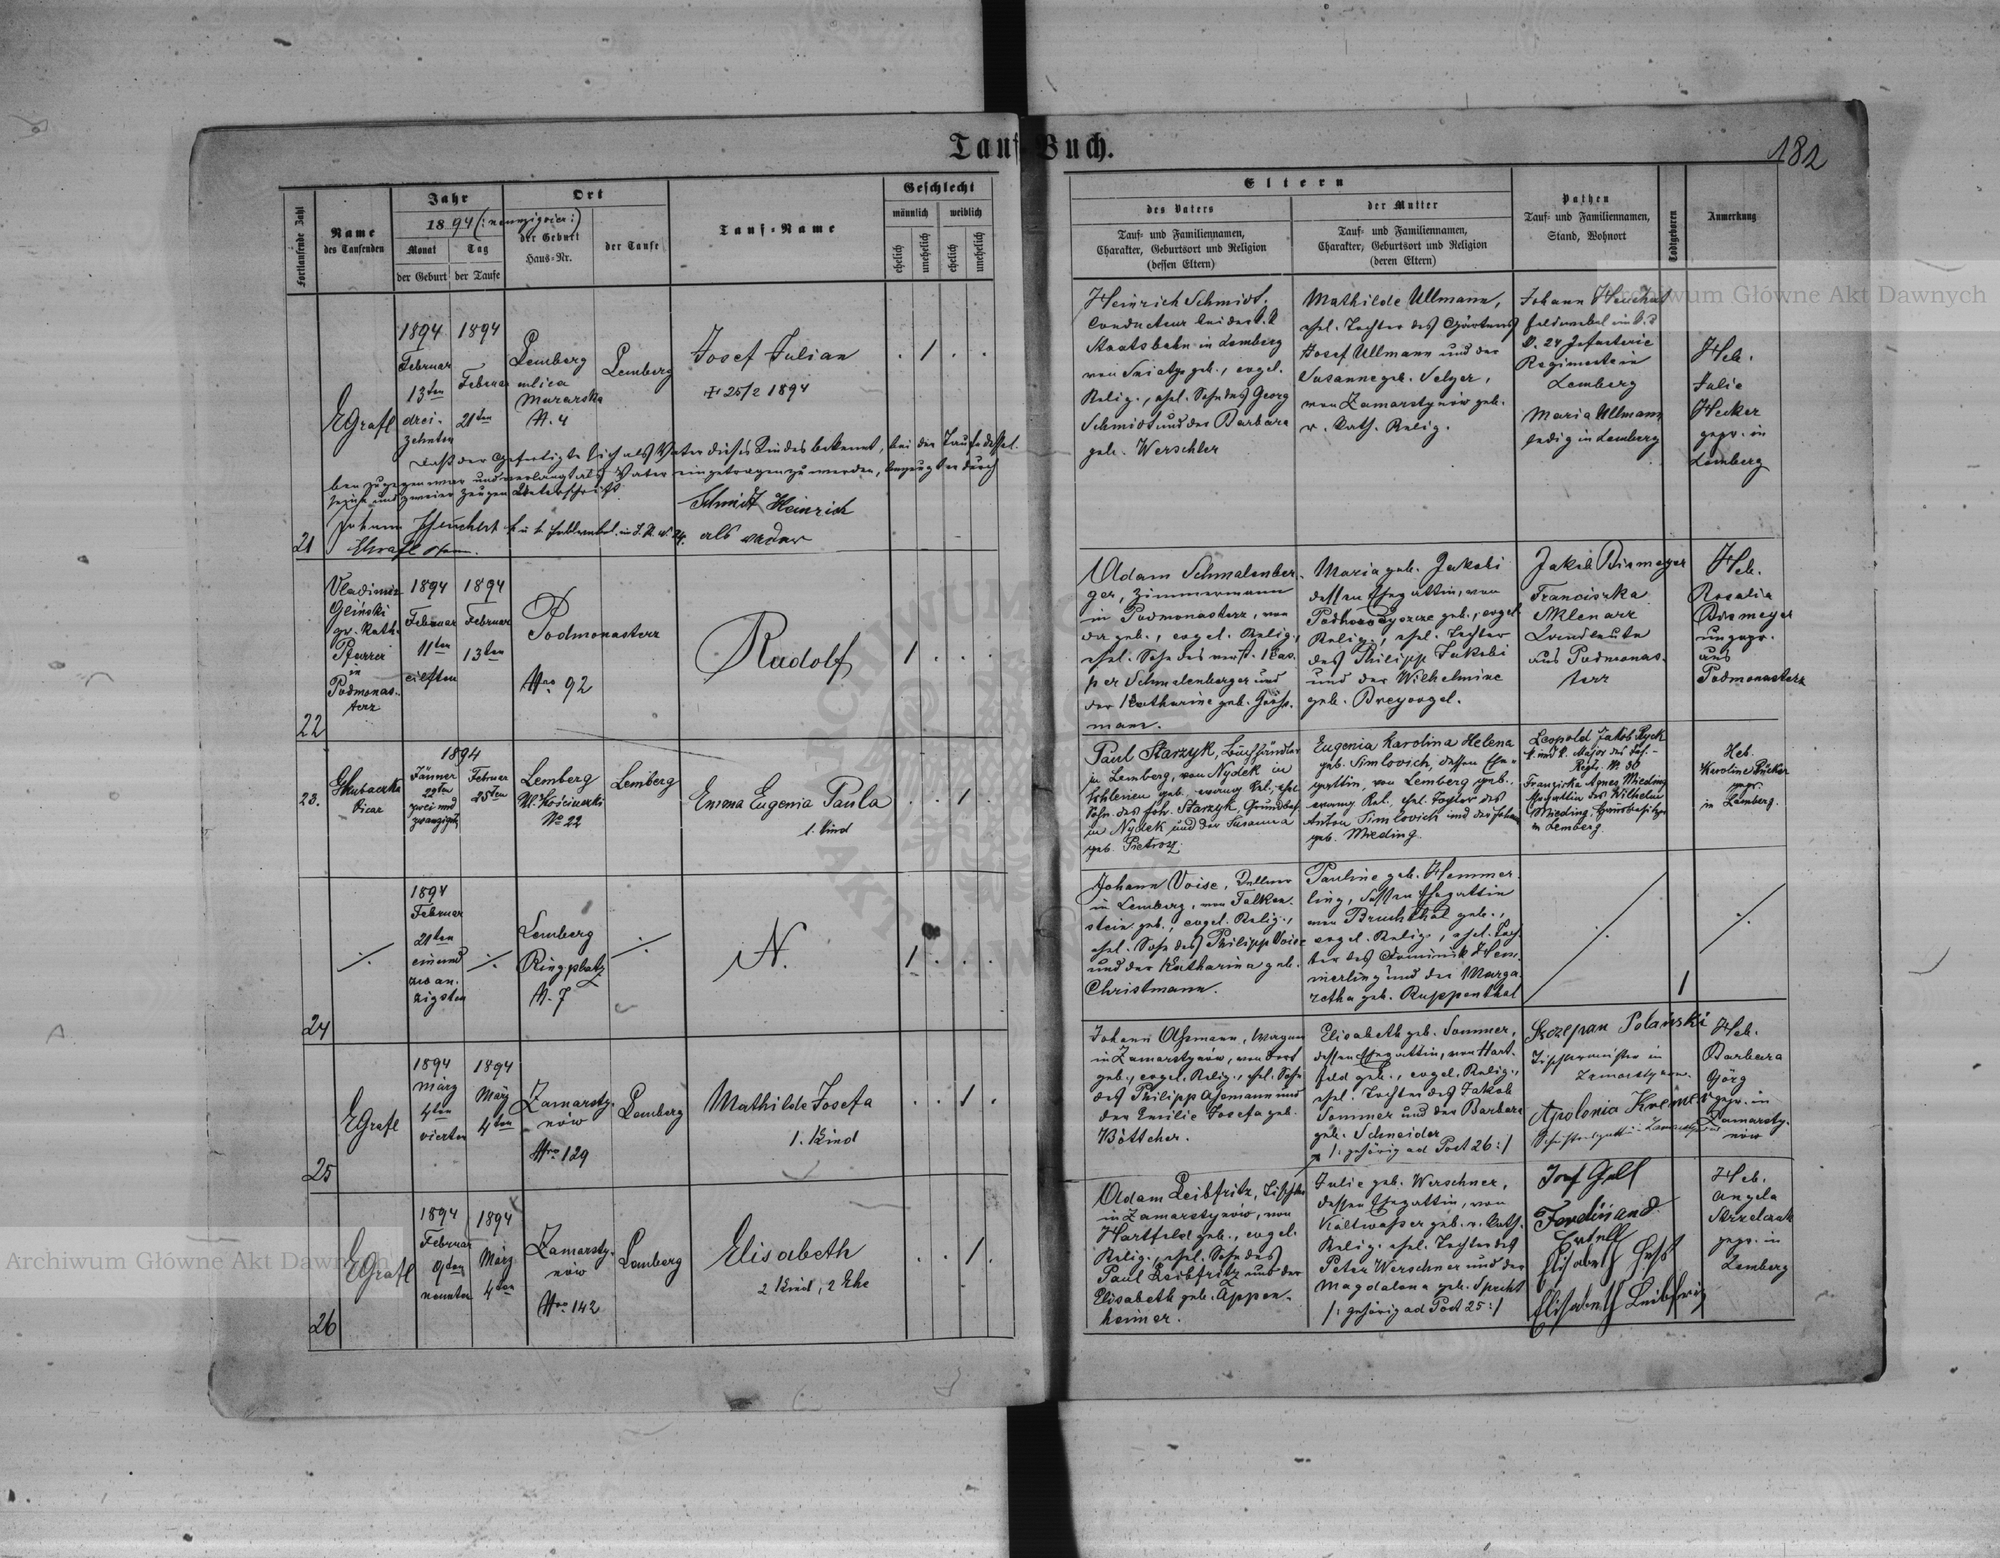 Tauf-Buch.
182
Fortlaufende Zahl
Name
des Taufenden
Jahr
1894 (: neunzigvier :)
Monat
Tag
der Geburt
der Taufe
Ort
der Geburt
Haus-Nr.
der Taufe
Tauf-Name
Geschlecht
männlich
weiblich
ehelich
unehelich
ehelich
unehelich
Eltern
des Vaters
Tauf- und Familiennamen,
Charakter, Geburtsort und Religion
(dessen Eltern)
der Mutter
Tauf- und Familiennamen,
Charakter, Geburtsort und Religion
(deren Eltern)
Pathen
Tauf- und Familiennamen,
Stand, Wohnort
Todtgeboren
Anmerkung
21
EGrafl
1894
Februar
13ten
drei-
zehnten
1894
Februar
21ten
Lemberg
ulica
Murarska
N. 4
Lemberg
Josef Julian
† 25/2 1894
. 1 . .
Daß der Gefertigte sich als Vater dieses Kindes bekennt, bei der Taufe dessel-
ben zugegen war und verlangt als Vater eingetragen zu werden, bezeugt er durch
seine und zweier Zeugen Unterschrift.
Schmidt Heinrich
als vader
Heinrich Schmidt,
Conducteur bei der k.k
Staatsbahn in Lemberg
von Sniatyn geb., evgel.
Relig., ehel. Sohn des Georg
Schmidt und der Barbara
geb. Werschler
Mathilde Ullmann,
ehel. Tochter des Gärtners
Josef Ullmann und der
Susanne geb. Selzer,
von Zamarstynów geb.
r. kath. Relig.
Johann
Feldwebel im k.k
N. 24 Infanterie
Regimente in
Lemberg
Maria Ullmann
ledig in Lemberg
Heb.
Julie
Hecker
gepr. in
Lemberg
22
Vladimir
Gliński
gr. kath.
Pfarrei
in
Podmonas-
terz
1894
Februar
11ten
eilften
1894
Februar
13ten
Podmonasterz
Nro 92
Rudolf
1 . . .
Adam Schmalenber-
ger, Zimmermann
in Podmonasterz, von
da geb., evgel. Relig.,
ehel. Sohn des verst. Kas-
per Schmalenberger und
der Katharine geb. Gäss-
mann.
Maria geb. Jakobi
dessen Ehegattin, von
geb., evgel.
Relig., ehel. Tochter
des Philipp Jakobi
und der Wilhelmine
geb. Breyvogel.
Jakob Birmeyer
Franciszka
Sklenarz
Landleute
aus Podmonas-
terz
Heb.
Rosalia
Birmeyer
ungepr.
aus
Podmonasterz
23.
GKubaczka
Vicar
1894
Jänner
22ten
zwei und
zwanzigsten
Februar
25ten
Lemberg
Ul. Kościuszki
No 22
Lemberg
Emma Eugenia Paula
1. Kind
. . 1
Paul Starzyk, Buchhändler
in Lemberg, von Nydek in
Schlesien geb., evang. Rel., ehel
Sohn des Joh. Starzyk, Grundbes.
in Nydek und der Susanna
geb. Pietrosz.
Eugenia Karolina Helena
geb. Simlovich, dessen Ehe-
gattin, von Lemberg geb.,
evang. Rel., ehel. Tochter des
Anton Simlovich und der
geb. Mieding.
Leopold Jakob Ryck
k. und k. Major des Inf.-
Regts. No 30
Franziska Agnes Mieding
Ehegattin des Wilhelm
Mieding, Hausbesitzer
in Lemberg.
Heb.
Karoline Bücker
gepr.
in Lemberg.
24
1894
Februar
21ten
ein und
zwan-
zigsten
Lemberg
Ringplatz
N. 7
N.
1 . . .
Johann Voise,
in Lemberg, von Falken-
stein geb., evgel. Relig.,
ehel. Sohn des Philipp Voise
und der Katharina geb.
Christmann.
Pauline geb. Hemmer-
ling, dessen Ehegattin
von Bruchthal geb.,
evgel. Relig., ehel. Toch-
ter des Dominik Hem-
merling und der Marga-
retha geb. Ruppenthal
1
25
EGrafl
1894
März
4ten
vierten
1894
März
4ten
Zamarsty-
nów
Nro 129
Lemberg
Mathilde Josefa
1. Kind
. . 1 .
Johann Aßmann,
in Zamarstynów, von
geb., evgel. Relig., ehel. Sohn
des Philipp Aßmann und
der Emilie Josefa geb.
Böttcher.
Elisabeth geb. Sommer,
dessen Ehegattin, von Hart-
feld geb., evgel. Relig.,
ehel. Tochter des Jakob
Sommer und der Barbara
geb. Schneider
/: gehörig ad Post 26 :/
Szczepan Polański
Tischlermeister in
Zamarstynow.
Apolonia
Heb.
Barbara
Görg
gepr. in
Zamarsty-
nów
26
EGrafl
1894
Februar
9ten
neunten
1894
März
4ten
Zamarsty-
nów
Nro 142
Lemberg
Elisabeth
2 Kind, 2 Ehe
. . 1 .
Adam Leibfritz, Tischler
in Zamarstynów, von
Hartfeld geb., evgel.
Relig., ehel. Sohn des
Paul Leibfritz und der
Elisabeth geb. Appen-
heimer.
Julie geb. Werschner,
dessen Ehegattin, von
Kaltwasser geb. r. kath.
Relig. ehel. Tochter des
Peter Werschner und der
Magdalena geb. Specht
/: gehörig ad Post 25 :/
Josef Gall
Ferdinand
Elisabeth Hess
Elisabeth Leibfritz
Heb.
Angela
Strzelczak
gepr. in
Lemberg
Archiwum Główne Akt Dawnych
Archiwum Główne Akt Dawnych